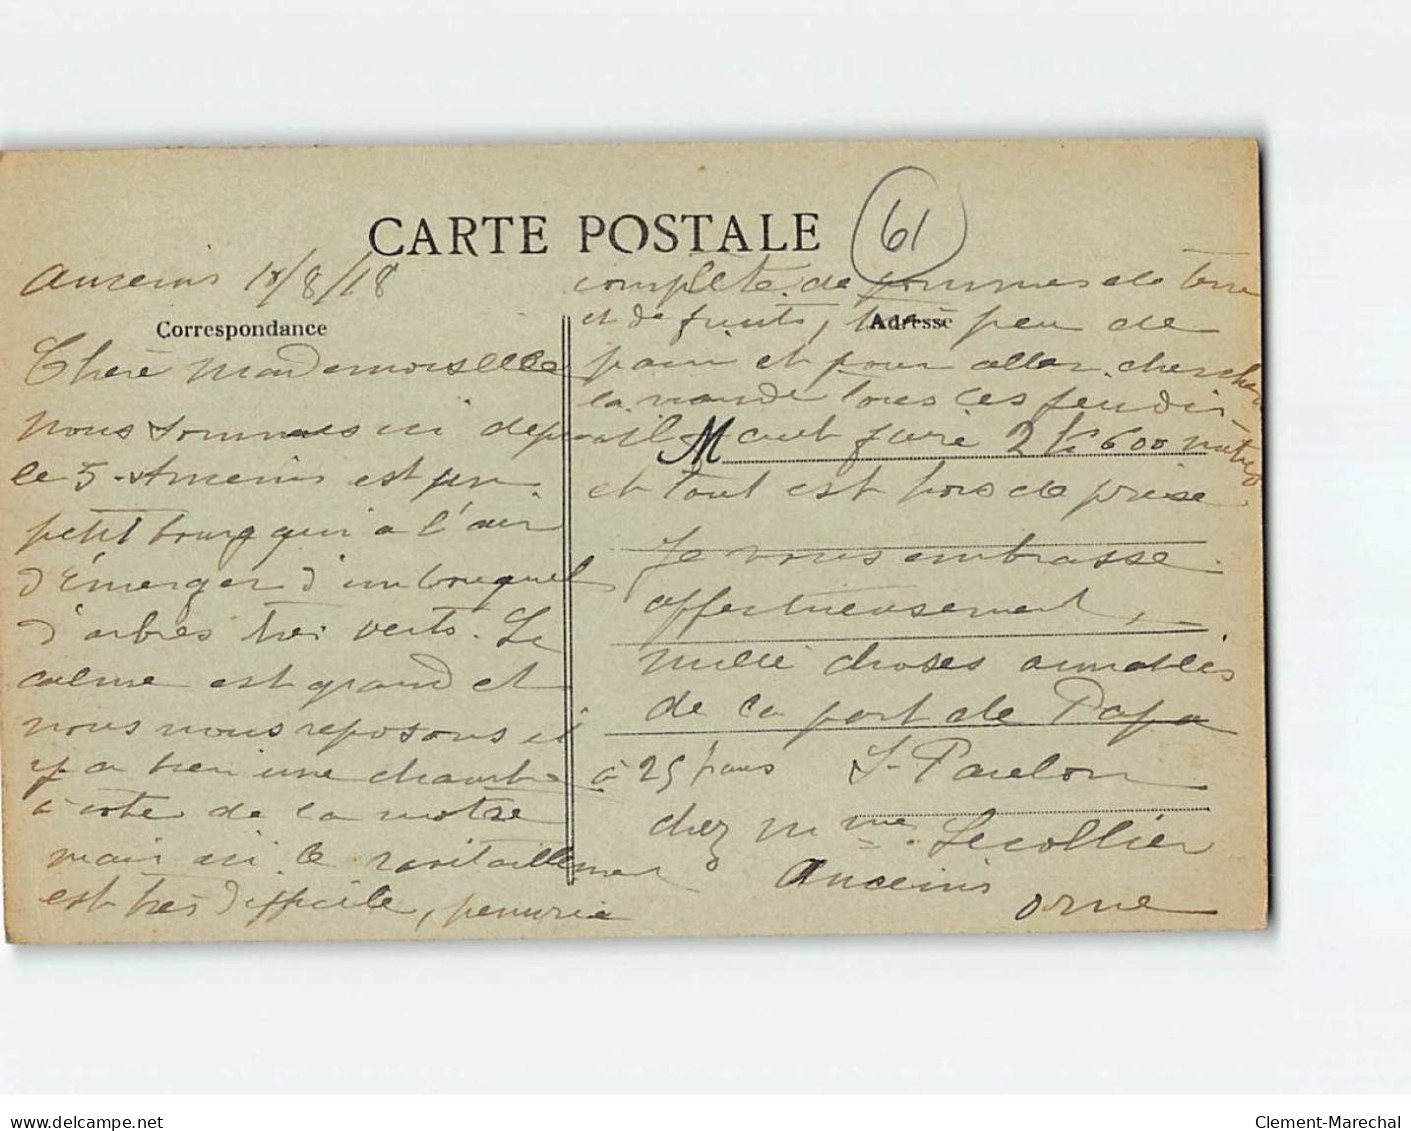 CARTE POSTALE
61
Anceins 10/8/18
Correspondance
Chère Mademoiselle
nous sommes ici depuis
le 5. Anceins est un
petit bourg qui a l'air
d'émerger d'un bouquet
d'arbres très verts. Le
calme est grand et
nous nous reposons il
y a bien une chambre à 25 francs
à côté de la notre
mais ici le ravitaillement
est très difficile, penurie
complète de pommes de terre
et de fruits, très peu de
Adresse
pain et pour aller chercher
la viande tous les jeudis
il M faut faire 2 K 600 mètres
et tout est hors de prise
Je vous embrasse
affectueusement,
mille choses aimables
de la part de Papa
J. Paulon
chez Mme Lecollier
Anceins
Orne
delcampe.net
Clement-Marechal